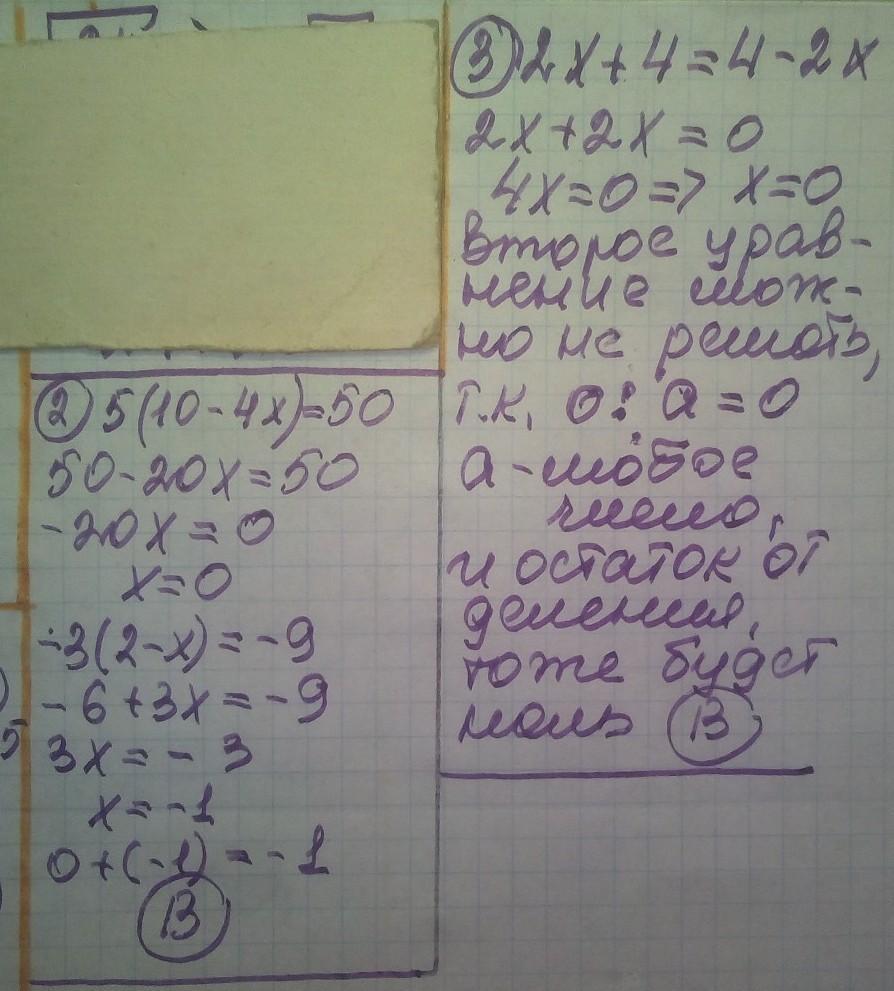 ② 5(10-4x)=50
50-20x=50
-20x=0
x=0
-3(2-x)=-9
-6+3x=-9
3x=-3
x=-1
0+(-1)=-1
В
③ 2x+4=4-2x
2x+2x=0
4x=0=> x=0
Второе урав-
нение мож-
но не решать,
т.к. 0:a=0
a-любое
число,
и остаток от
деления,
тоже будет
ноль В